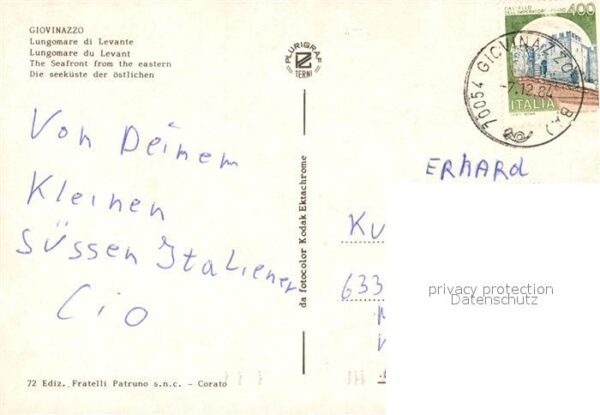 GIOVINAZZO
Lungomare di Levante
Lungomare du Levant
The Seafront from the eastern
Die seeküste der östlichen
PLURIGRAF
TERNI
400
ITALIA
70054 GIOVINAZZO (BA)
-7.12.84
Von Deinem
Kleinen
süssen Italiener
Cio
da fotocolor Kodak Ektachrome
ERHARD
KU
633
privacy protection
Datenschutz
72 Ediz. Fratelli Patruno s.n.c. - Corato